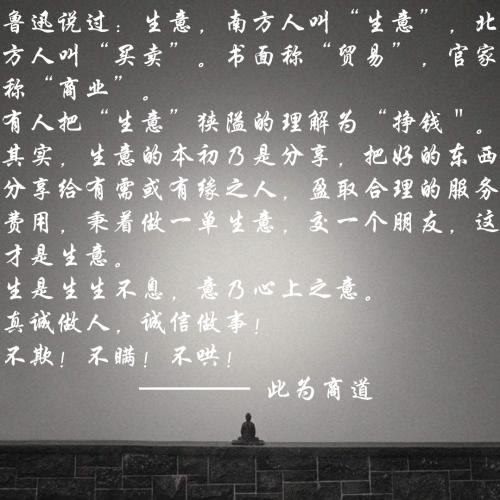 鲁迅说过：生意，南方人叫“生意”，北
方人叫“买卖”。书面称“贸易”，官家
称“商业”。
有人把“生意”狭隘的理解为“挣钱"。
其实，生意的本初乃是分享，把好的东西
分享给有需或有缘之人，盈取合理的服务
费用，秉着做一单生意，交一个朋友，这
才是生意。
生是生生不息，意乃心上之意。
真诚做人，诚信做事！
不欺！不瞒！不哄！
———— 此为商道